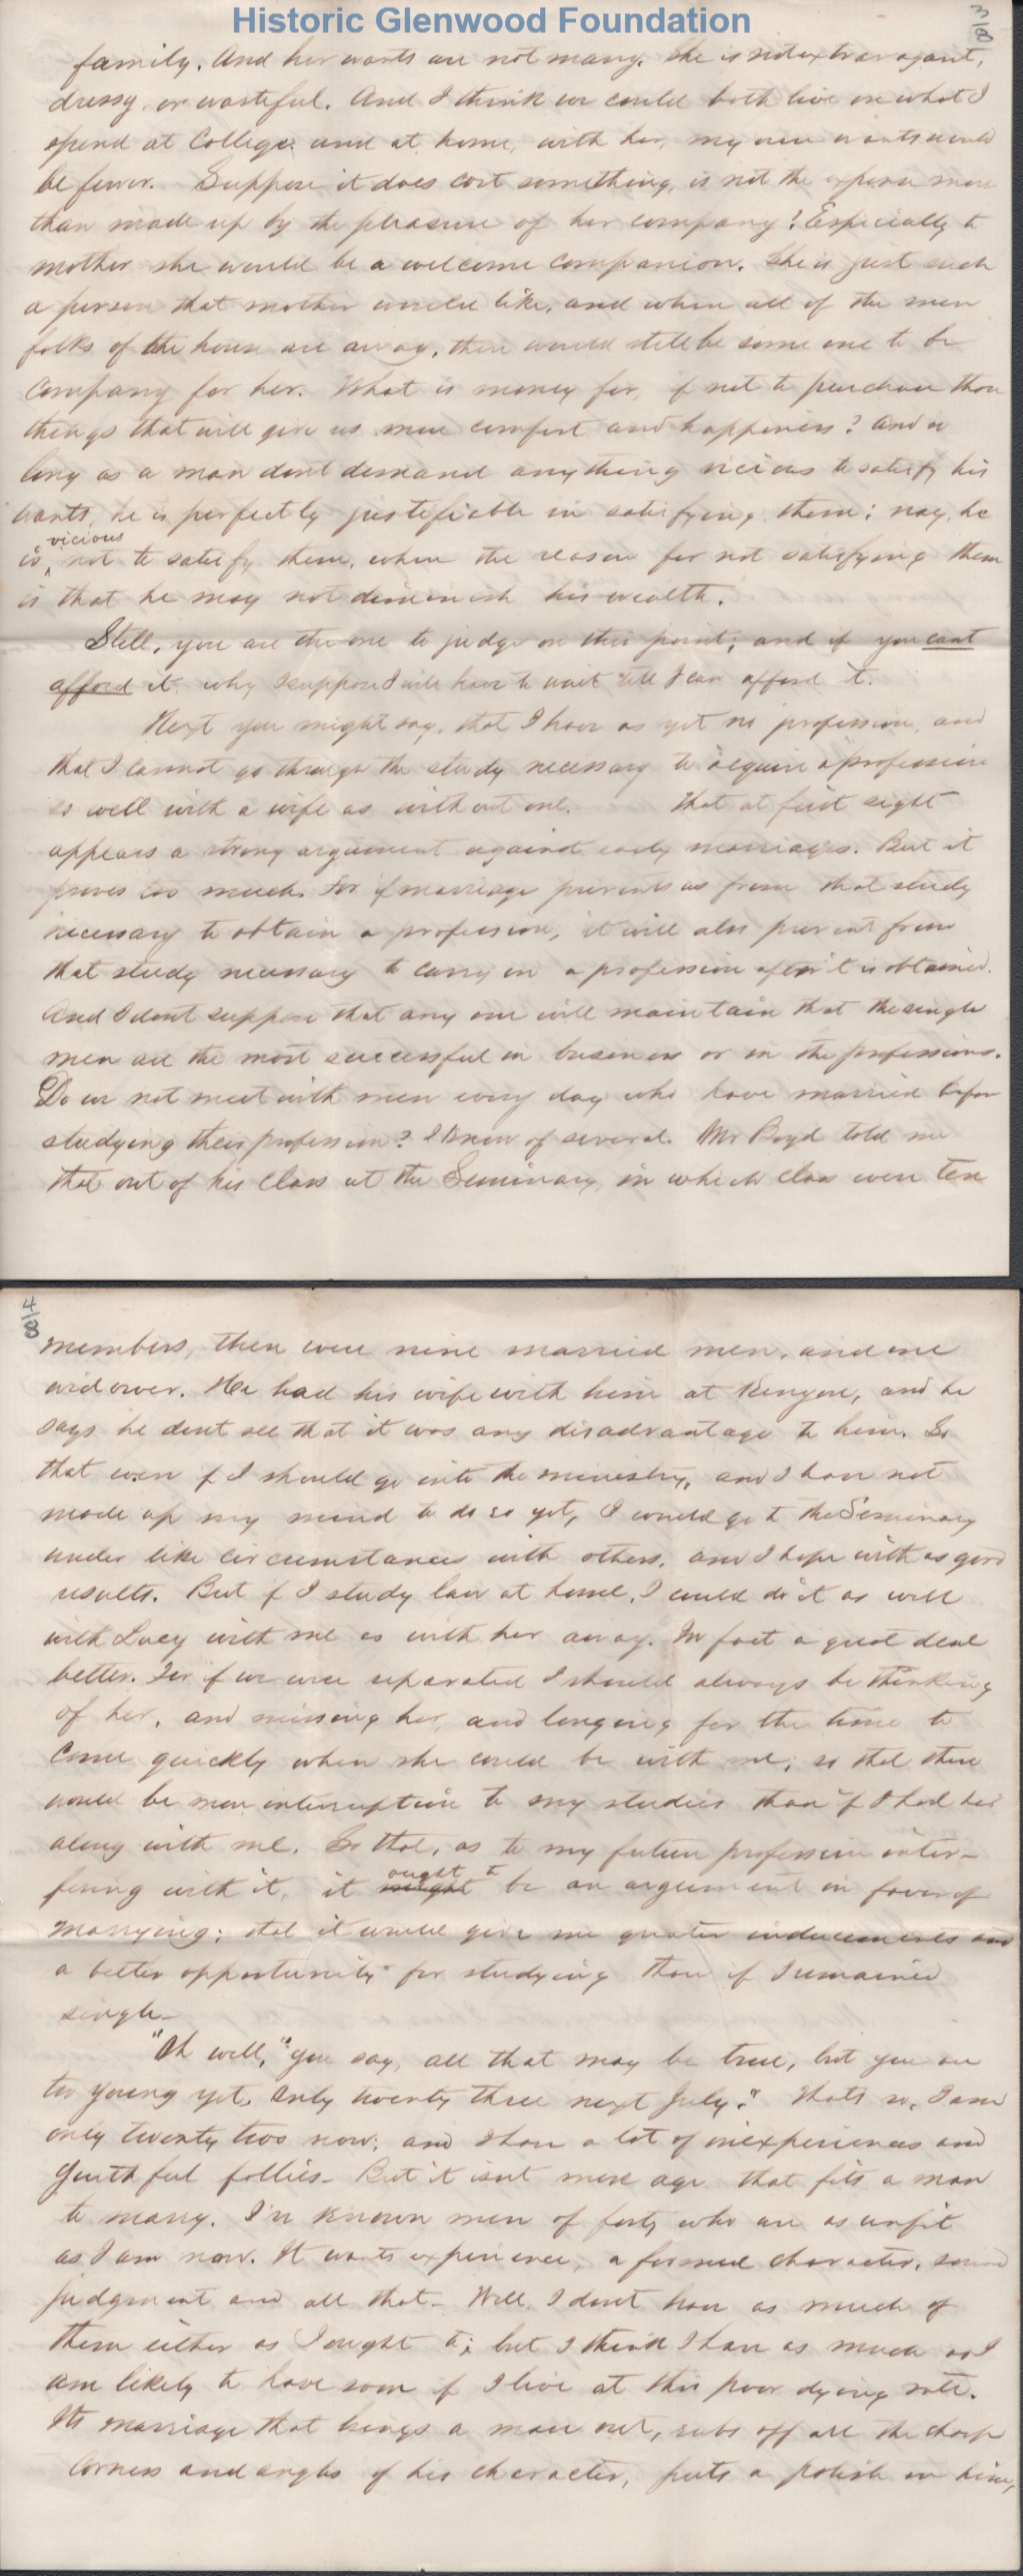 Historic Glenwood Foundation
8/3
family. And her wants are not many. She is not extravagant,
dressy or wasteful. And I think we could both live on what I
spend at College and at home, with her, my own wants would
be fewer. Suppose it does cost something, is not the expense more
than made up by the pleasure of her company? Especially to
mother she would be a welcome companion. She is just such
a person that mother would like, and when all of the men
folks of the house are away, there would still be some one to be
company for her. What is money for, if not to purchase those
things that will give us more comfort and happiness? And so
long as a man dont demand anything vicious to satisfy his
wants, he is perfectly justifiable in satisfying them; nay, he
vicious
is not to satisfy them, when the reason for not satisfying them
is that he may not diminish his wealth.
Still, you are the one to judge on this point; and if you cant
afford it, why I suppose I will have to wait till I can afford it.
Next you might say, that I have as yet no profession, and
that I cannot go through the study necessary to acquire a profession
so well with a wife as without one. That at first sight
appears a strong argument against early marriages. But it
proves too much. For if marriage prevents us from that study
necessary to obtain a profession, it will also prevent from
that study necessary to carry on a profession after it is obtained.
And I dont suppose that any one will maintain that the single
men are the most successful in business or in the professions.
Do we not meet with men every day who have married before
studying their profession? I know of several. Mr Boyd told me
that out of his class at the Seminary, in which class were ten
8/4
members, there were nine married men, and one
widower. He had his wife with him at Kenyon, and he
says he dont see that it was any disadvantage to him. So
that even if I should go into the ministry, and I have not
made up my mind to do so yet, I would go to the Seminary
under like circumstances with others, and I hope with as good
results. But if I study law at home, I could do it as well
with Lucy with me as with her away. In fact a great deal
better. For if we were separated I should always be thinking
of her, and missing her, and longing for the time to
come quickly when she could be with me; so that there
would be more interruption to my studies than if I had her
along with me. So that, as to my future profession inter-
ought to
fering with it, it might be an argument in favor of
marrying; that it would give me greater inducements and
a better opportunity for studying than if I remained
single—
"Oh well," you say, all that may be true, but you are
too young yet. Only twenty three next July." Thats so, I am
only twenty two now; and I have a lot of inexperiences and
youthful follies— But it isnt mere age that fits a man
to marry. I've known men of forty who are as unfit
as I am now. It wants experience, a formed character, sound
judgment and all that— Well, I dont have as much of
them either as I ought to; but I think I have as much as I
am likely to have soon if I live at this poor dying rate.
Its marriage that brings a man out, rubs off all the sharp
corners and angles of his character, puts a polish on him,